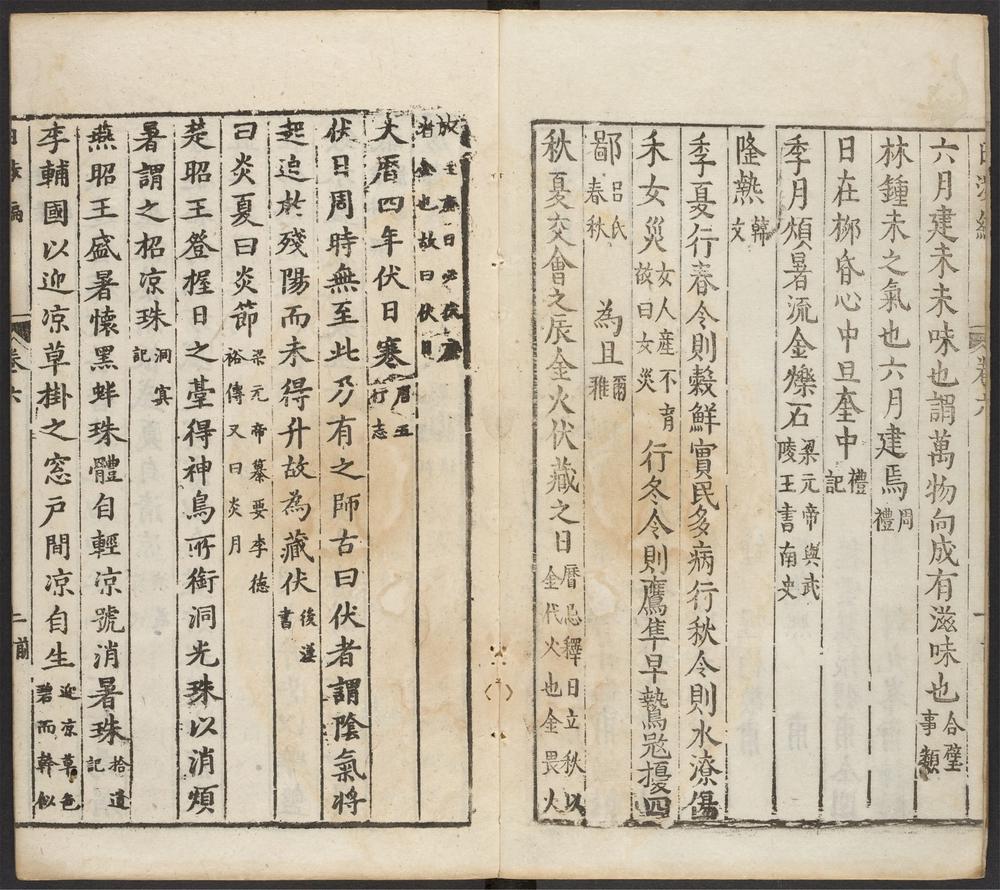 六月建未未味也謂萬物向成有滋味也合璧事類
林鍾未之氣也六月建焉周禮
日在柳昏心中旦奎中禮記
季月煩暑流金爍石梁元帝與武陵王書南史
隆熱韓文
季夏行春令則穀鮮實民多病行秋令則水潦傷
禾女災女人産不育故曰女災行冬令則鷹隼早鷙寇擾四
鄙呂氏春秋 為且爾雅
秋夏交會之辰金火伏藏之日曆忌釋曰立秋以金代火也金畏火
故至庚日必伏庚者金也故曰伏日
大曆四年伏日寒唐五行志
伏日周時無至此乃有之師古曰伏者謂陰氣將
起迫於殘陽而未得升故為藏伏後漢書
曰炎夏曰炎節梁元帝纂要李德裕傳又曰炎月
楚昭王登握日之臺得神鳥所銜洞光珠以消煩
暑謂之招凉珠洞冥記
燕昭王盛暑懷黑蚌珠體自輕凉號消暑珠拾遺記
李輔國以迎凉草掛之窓戶間凉自生迎凉草色碧而幹似
卷六
二前